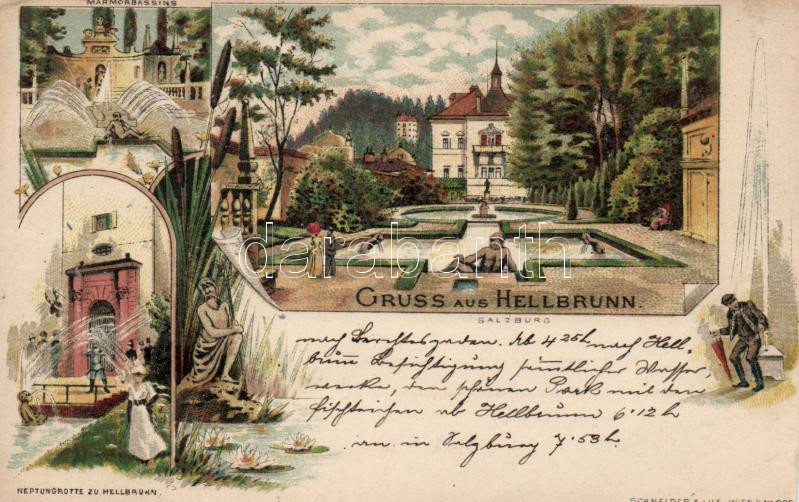 MARMORBASSINS
darabanth
GRUSS AUS HELLBRUNN.
SALZBURG
nach Berchtesgaden. Ab 4 25h nach Hell-
brunn Besichtigung sämtlicher Wasser
werke, den schönen Park mit den
Fischteichen ab Hellbrunn 6·12h
an in Salzburg 7·53h.
NEPTUNGROTTE ZU HELLBRUNN.
SCHNEIDER & LUX, WIEN